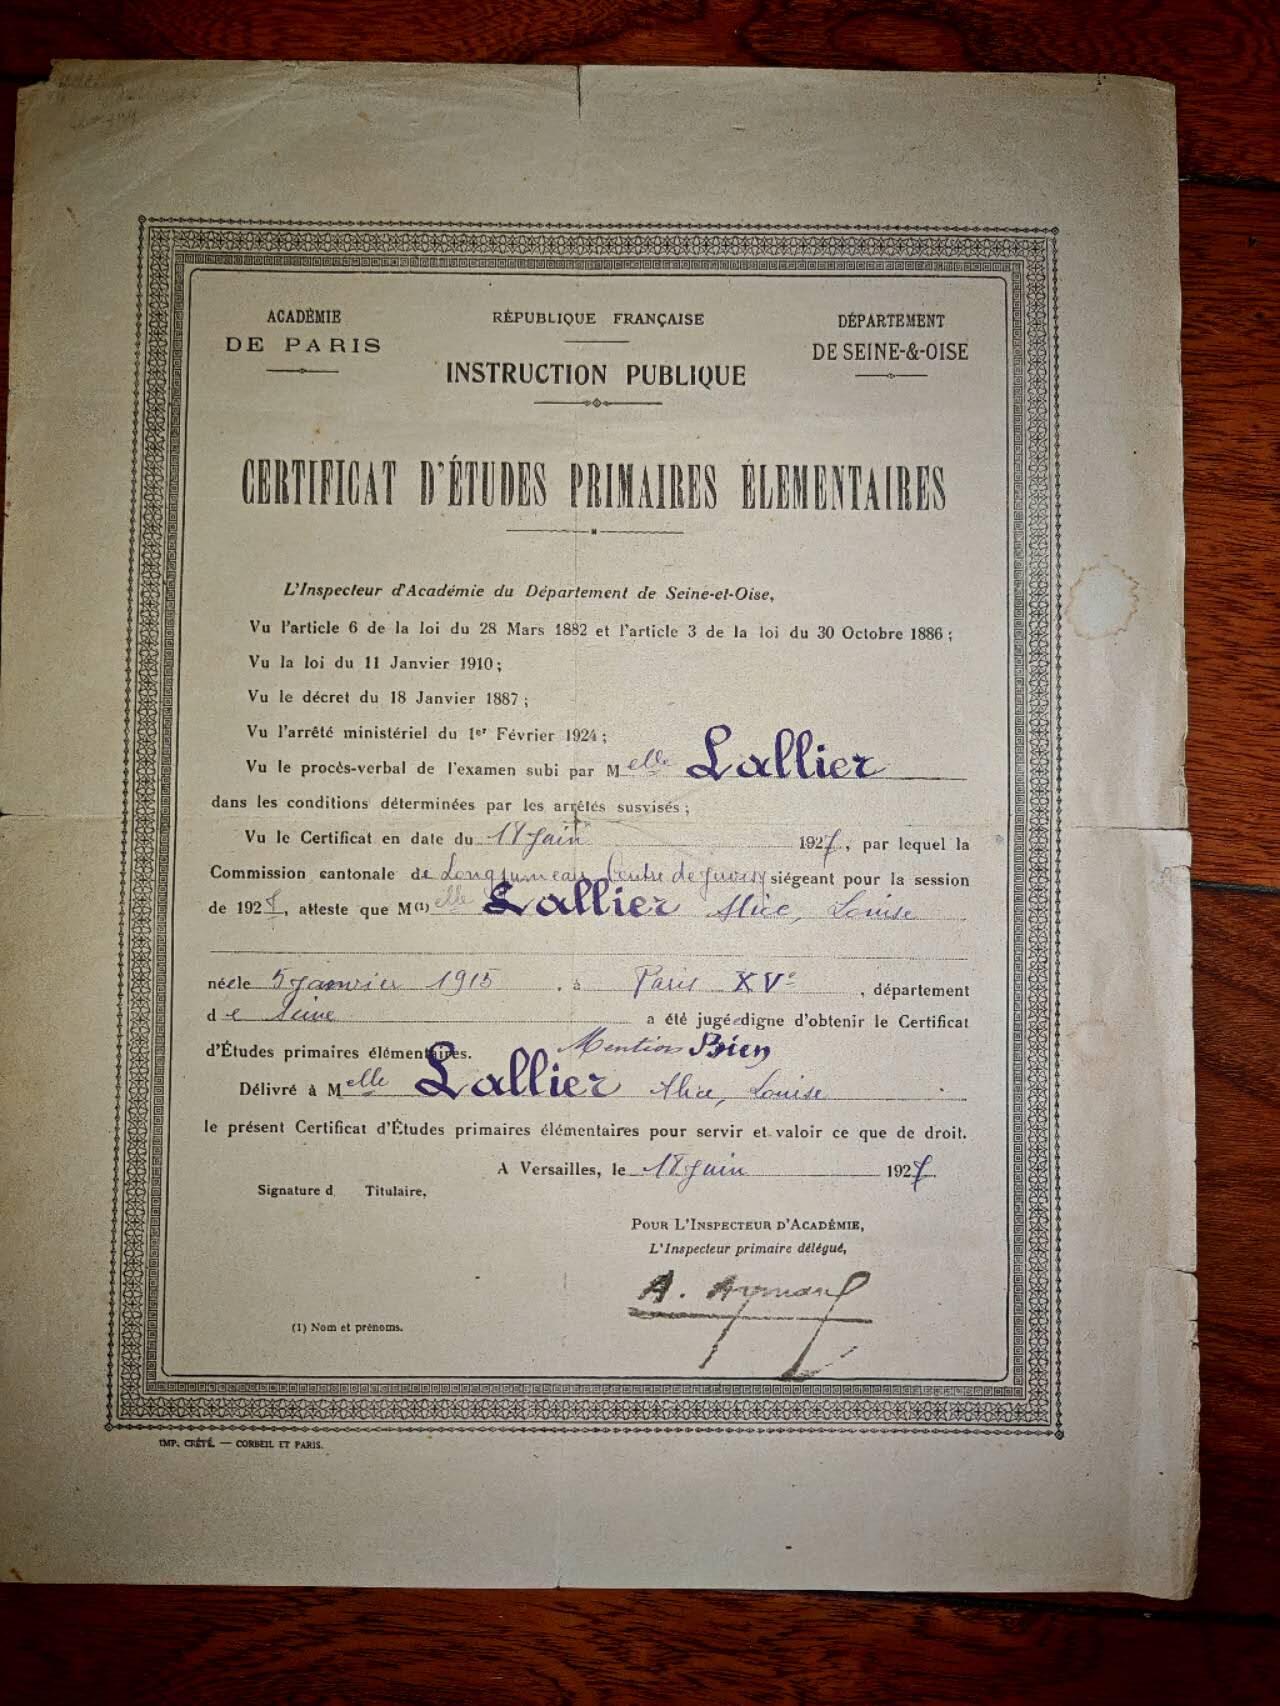 ACADÉMIE
DE PARIS
RÉPUBLIQUE FRANÇAISE
INSTRUCTION PUBLIQUE
DÉPARTEMENT
DE SEINE-&-OISE
CERTIFICAT D'ÉTUDES PRIMAIRES ÉLEMENTAIRES
L'Inspecteur d'Académie du Département de Seine-et-Oise,
Vu l'article 6 de la loi du 28 Mars 1882 et l'article 3 de la loi du 30 Octobre 1886 ;
Vu la loi du 11 Janvier 1910 ;
Vu le décret du 18 Janvier 1887 ;
Vu l'arrêté ministériel du 1er Février 1924 ;
Vu le procès-verbal de l'examen subi par Melle Lallier
dans les conditions déterminées par les arrêtés susvisés ;
Vu le Certificat en date du 18 juin 1927, par lequel la
Commission cantonale de Longjumeau Centre de Juvisy siégeant pour la session
de 1927, atteste que M(1)elle Lallier Alice, Louise
née le 5 janvier 1915 à Paris XVe, département
de Seine a été jugée digne d'obtenir le Certificat
d'Études primaires élémentaires. Mention Bien
Délivré à Melle Lallier Alice, Louise
le présent Certificat d'Études primaires élémentaires pour servir et valoir ce que de droit.
A Versailles, le 18 juin 1927.
Signature d Titulaire,
POUR L'INSPECTEUR D'ACADÉMIE,
L'Inspecteur primaire délégué,
A. Aymard
(1) Nom et prénoms.
IMP. CRÉTÉ. — CORBEIL ET PARIS.